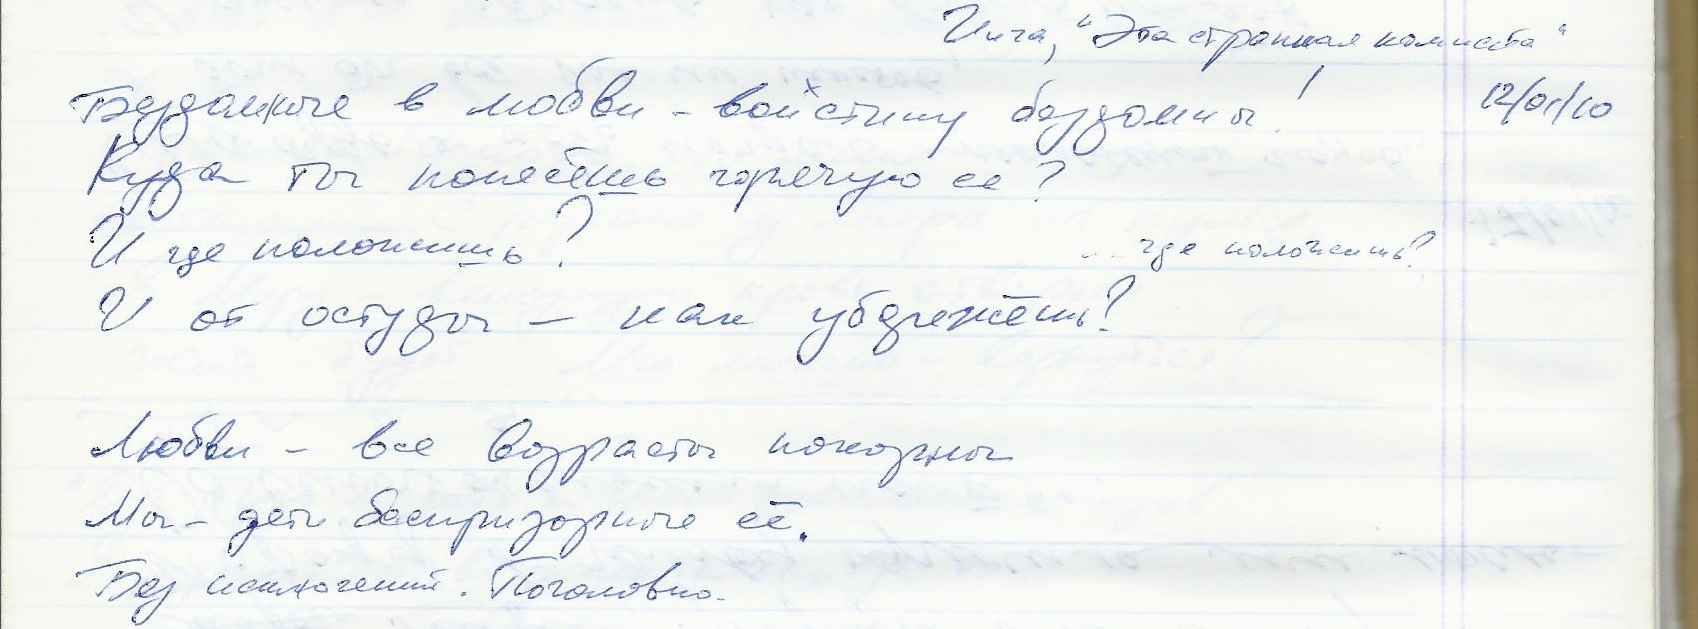 "Эта странная
12/01/10
Бездомные в любви – воистину бездомны!
Куда ты понесёшь горячую ее?
И где положишь?
... где положишь?
И от остуды – как убережёшь?
Любви – все возрасты покорны
Мы – дети беспризорные её.
Без исключений. Поголовно.